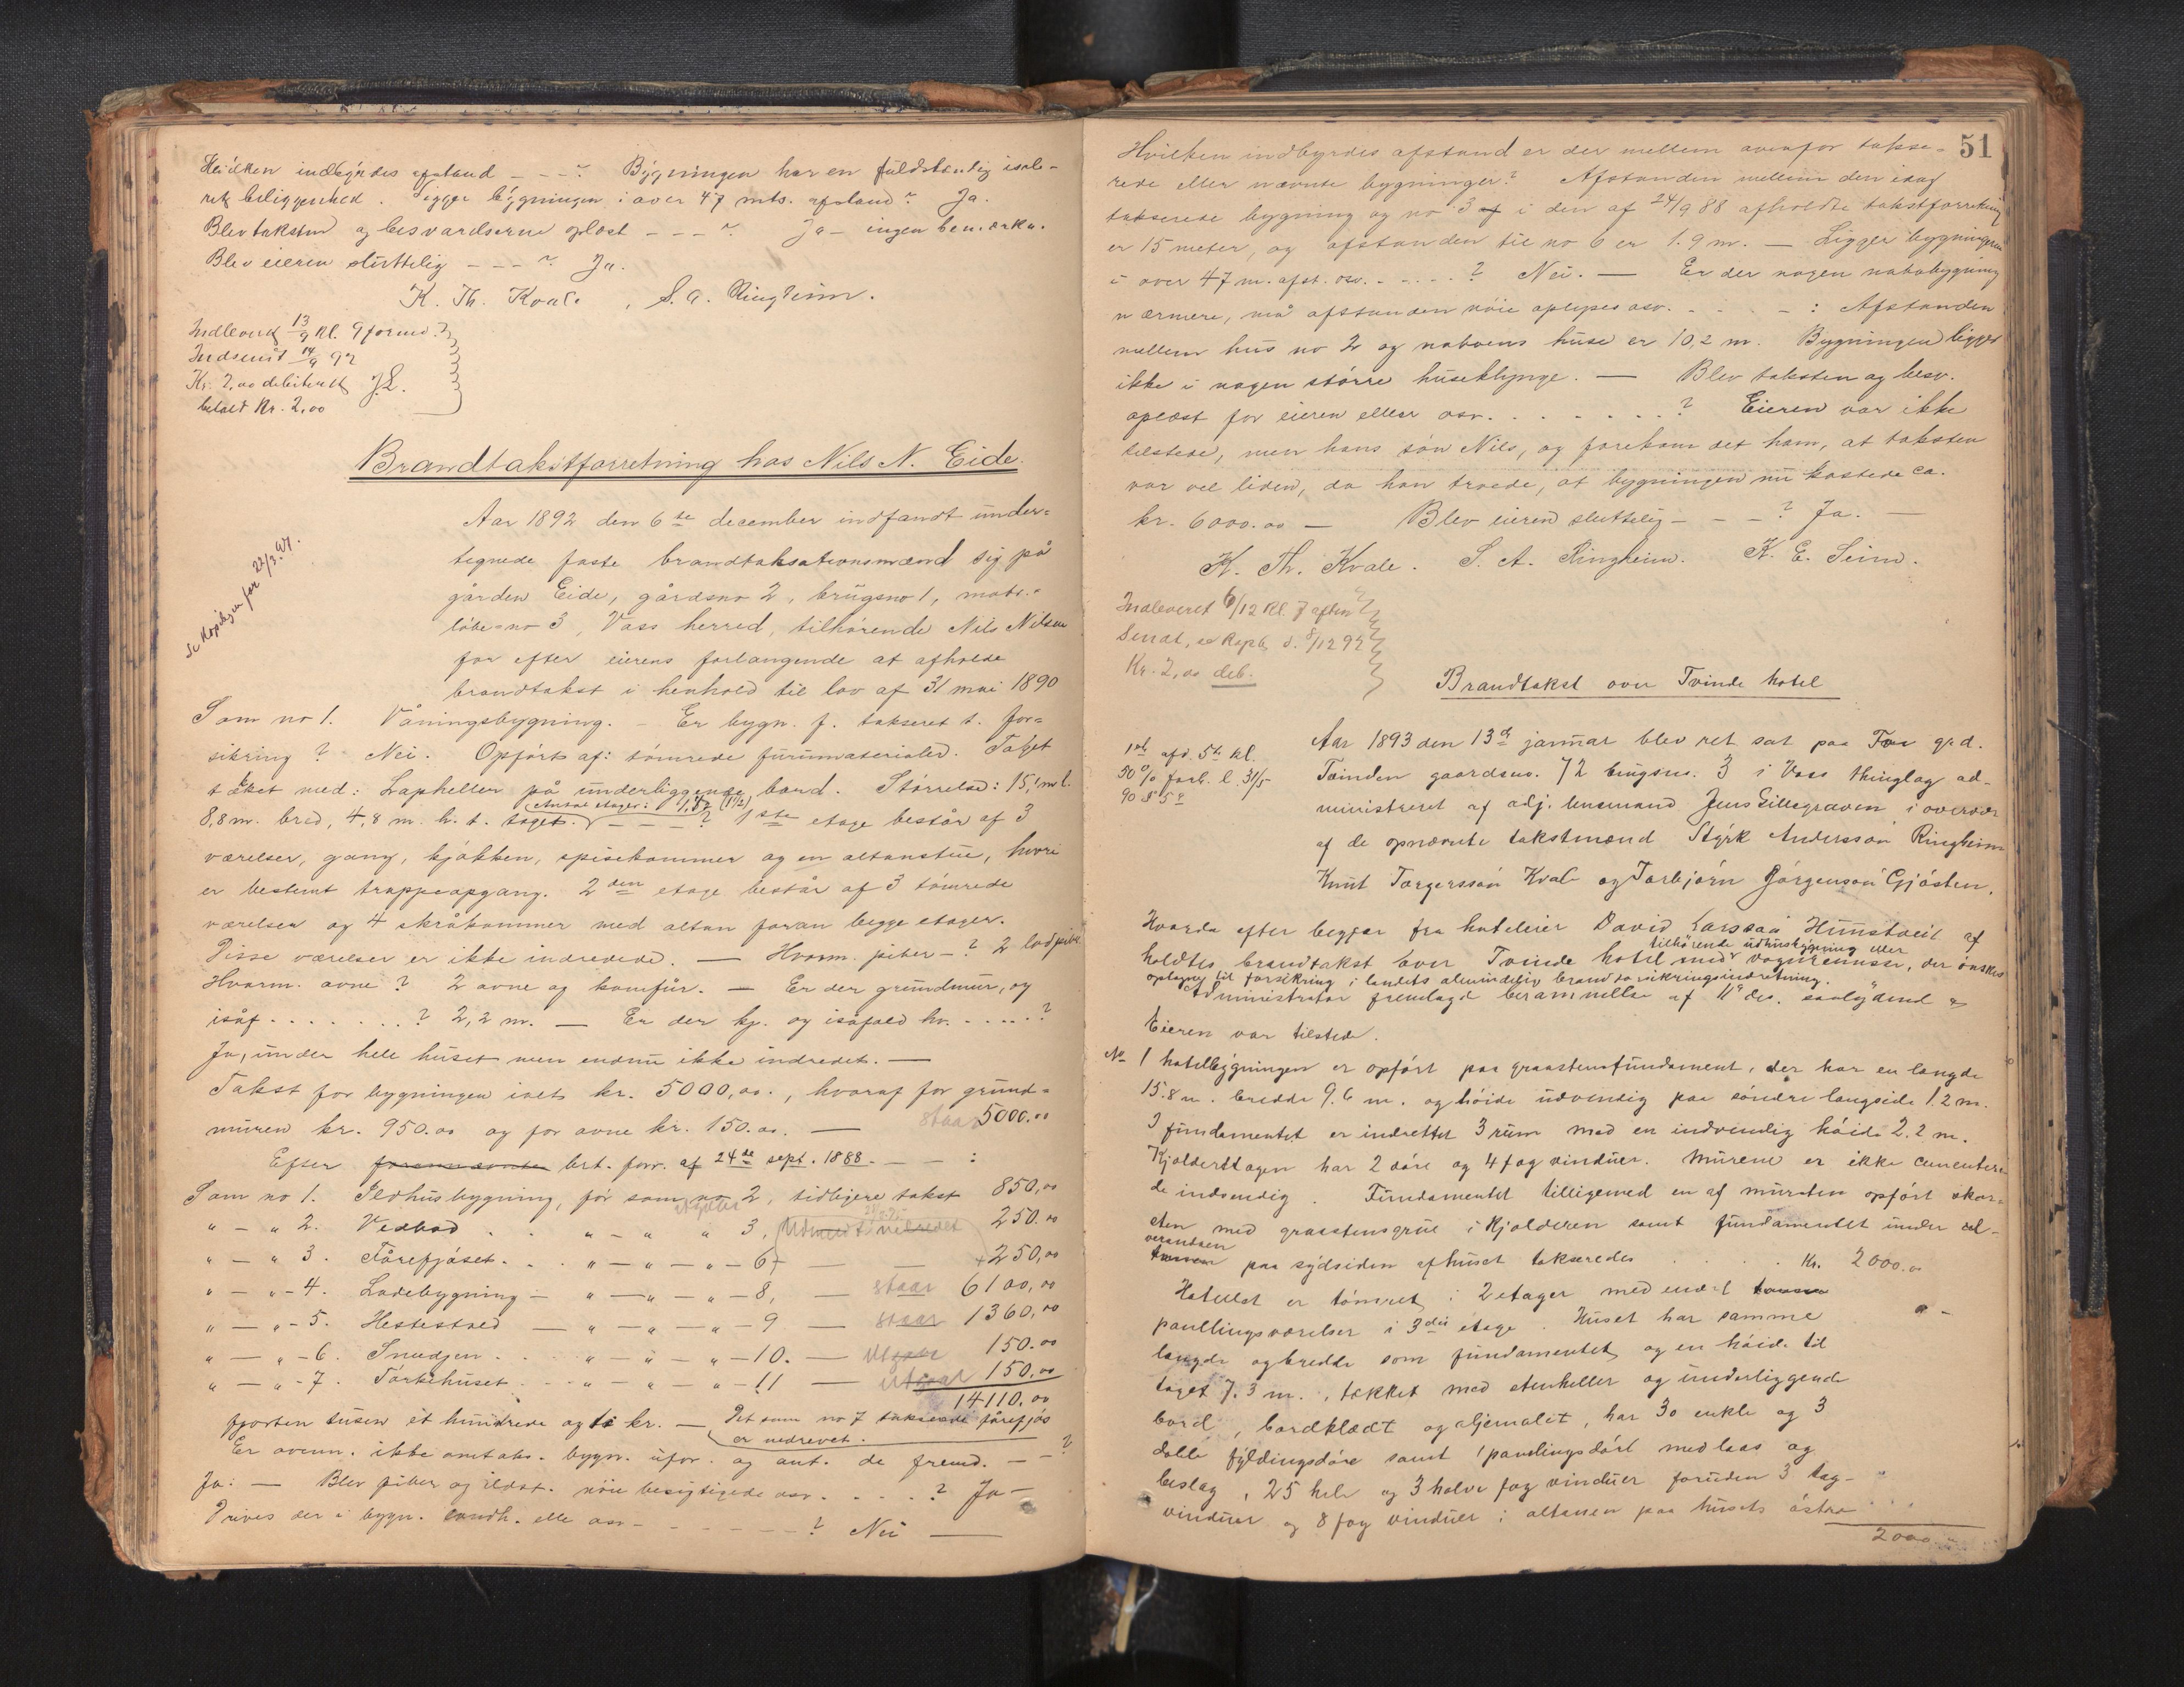 Hvilken indbyrdes afstand - - - ? Bygningen har en fuldstændig isole-
ret beliggenhed. Ligger bygningen i over 47 mts. afstand? Ja.
Blev taksten og besvarelserne oplæst - - - ? Ja - ingen bemærkn.
Blev eieren sluttelig - - - ? Ja.
K. Th. Kvale, S. A. Ringheim.
Indleveret 13/9 Kl. 9 formd.
Indsendt 14/9 92
Kr. 2,00 debiteret
betalt Kr. 2,00
Brandtakstforretning hos Nils N. Eide.
Aar 1892 den 6te december indfandt under-
tegnede faste brandtaksationsmænd sig på
gården Eide, gårdsno 2, brugsno 1, matr.-
løbe-no 3, Voss herred, tilhørende Nils Nilsen
for efter eierens forlangende at afholde
brandtakst i henhold til lov af 31 mai 1890
Som no 1. Våningsbygning. - Er bygn. f. takseret t. for-
sikring? Nei. Opført af: tømrede furumaterialer. Taget
tækket med: Lapheller på underliggende bord. Størrelse: 15,1 m l.
8,8 m. bred, 4,8 m. h. t. taget. Antal etager: 1 1/2 (1 1/2) - - - ? 1ste etage består af 3
værelser, gang, kjøkken, spisekammer og en altanstue, hvori
er bestemt trappeopgang. 2den etage består af 3 tømrede
værelser og 4 skråkammer med altan foran begge etager.
Disse værelser er ikke indredede. — Hvorm. piber - ? 2 lodpiber
Hvorm. ovne? 2 ovne og komfur. — Er der grundmur, og
isåf . . . . . . . ? 2,2 m. — Er der kj. og isåfald hv. . . . . . ?
Ja, under hele huset men endnu ikke indredet. —
Takst for bygningen ialt kr. 5000,00., hvoraf for grund-
muren kr. 950.00 og for ovne kr. 150.00. — staar 5000.00
Efter brt. forr. af 24de sept. 1888. - - - :
Som no 1. Ildhusbygning, før som no 2, tidligere takst 850,00
" - " 2. Vedbod . . " - " " 3, 250.00
" - " 3. Fårefjøset . . . " - " - " - 6 - 250,00
" - " - 4. Ladebygning - " - " - " - 8, — staar 6100,00
" - " - 5. Hestestald — " - " - " - 9 — staar 1360,00
" - " - 6. Smedjen . . . " - " - " - 10. — Utgaar 150.00
" - " - 7. Tørkehuset . . . " - " - " - 11 — Utgaar 150,00
14110,00
fjorten tusen et hundrede og ti kr. — Det som no 7 takserede fårefjøs
er nedrevet.
Er ovenn. ikke omtaks. bygn. ufor. og ant. de fremd. - - ?
Ja: — Blev piber og ildst. nøie besigtigede osv . . . . ? Ja —
Drives der i bygn. landh. elle osv - - - - - - ? Nei —
Se Kopibogen for 22/3.97.
51
Hvilken indbyrdes afstand er der mellem ovenfor takse-
rede eller nævnte bygninger? Afstanden mellem den idag
takserede bygning og no 3 af i den af 24/9 88 afholdte takstforretning
er 15 meter, og afstanden til no 6 er 1.9 m. — Ligger bygningen
i over 47 m. afst. osv. . . . . . ? Nei. — Er der nogen nabobygning
nærmere, må afstanden nøie oplyses osv. . . . - : Afstanden
mellem hus no 2 og naboens huse er 10,2 m. Bygningen ligger
ikke i nogen større huseklynge. — Blev taksten og besv.
oplæst for eieren eller osv. . . . . . . ? Eieren var ikke
tilstede, men hans søn Nils, og forekom det ham, at taksten
var vel liden, da han troede, at bygningen nu kostede ca.
kr. 6000.00 — Blev eieren sluttelig - - - ? Ja. —
K. Th. Kvale. S. A. Ringheim. K. E. Seim.
Indleveret 6/12 Kl. 7 aften
Sendt, se Kopb. d. 8/12 92
Kr. 2,00 deb.
Brandtakst over Tvinde hotel
1ste afd. 5te kl.
50% forh. l. 31/5
90 § 5
Aar 1893 den 13de januar blev ret sat paa grd.
Tvinden gaardsno. 72 brugsno. 3 i Voss thinglag ad-
ministreret af adj. lensmand Jens Lillegraven i overvær
af de opnævnte takstmænd Styrk Andersson Ringheim
Knut Torgersson Kvale og Torbjørn Jørgenson Gjøsten.
Hvorda efter begjær fra hoteleier David Larsson Himstveit af
holdtes brandtakst over Tvinde hotel med tilhørende udhusbygning eller vognremisse, der ønskes
optaget til forsikring i landets almindelig brandforsikringsindretning.
Administrator fremlagde berammelse af 11te ds. saalydende
Eieren var tilstede.
No 1 hotelbygningen er opført paa graastensfundament, der har en længde
15.8 m. bredde 9.6 m. og høide udvendig paa søndre langside 1.2 m.
I fundamentet er indrettet 3 rum med en indvendig høide 2.2 m.
Kjælderetagen har 2 døre og 4 fag vinduer. Murene er ikke cementere
de indvendig. Fundamentet tilligemed en af mursten opført skor-
sten med graastensgrue i kjælderen samt fundamentet under
verandaen paa sydsiden af huset takseredes . . . . . Kr. 2000.00
Hotellet er tømret i 2 etager med endel
panelingsværelser i 3die etage. Huset har samme
længde og bredde som fundamentet, og en høide til
taget 7.3 m., tækket med stenheller og underliggende
bord, bordklædt og oljemalet, har 30 enkle og 3
doble fyldingsdøre samt 1 panelingsdør med laas og
beslag, 25 hele og 3 halve fag vinduer foruden 3 tag-
vinduer og 8 fag vinduer i altanen paa husets østre
2000